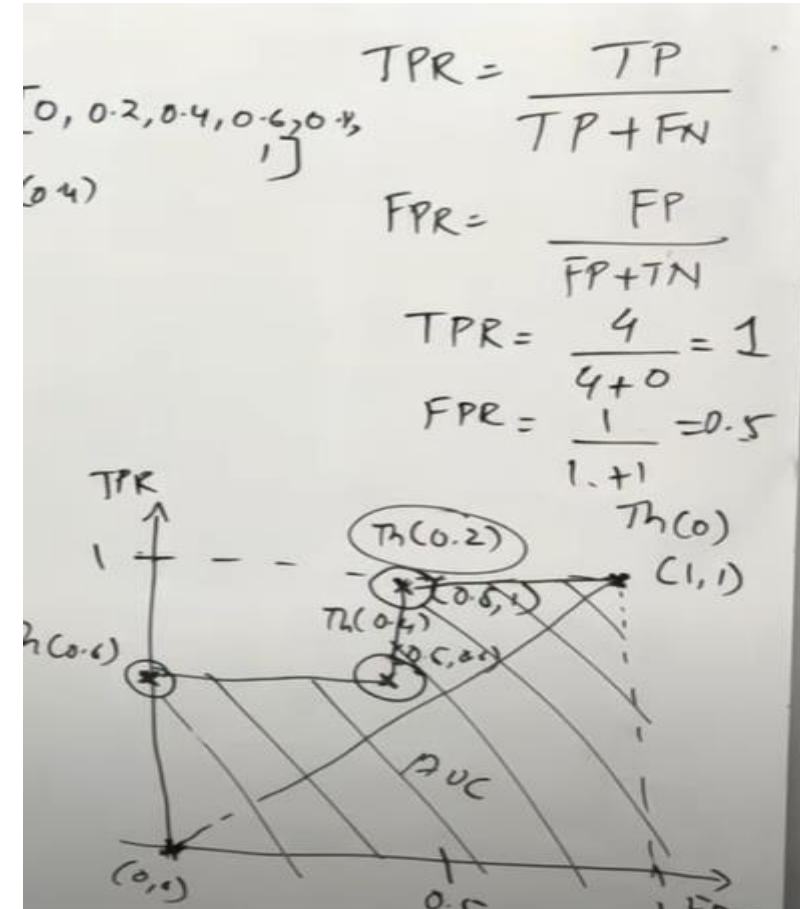 TPR = TP / TP + FN
[0, 0.2, 0.4, 0.6, 0.8,
1]
(0.4)
FPR = FP / FP + TN
TPR = 4 / 4 + 0 = 1
FPR = 1 / 1. + 1 = 0.5
TPR
Th(0.2)
Th(0)
1
(1, 1)
(0.5, 1)
Th(0.4)
h(0.6)
AUC
0.5